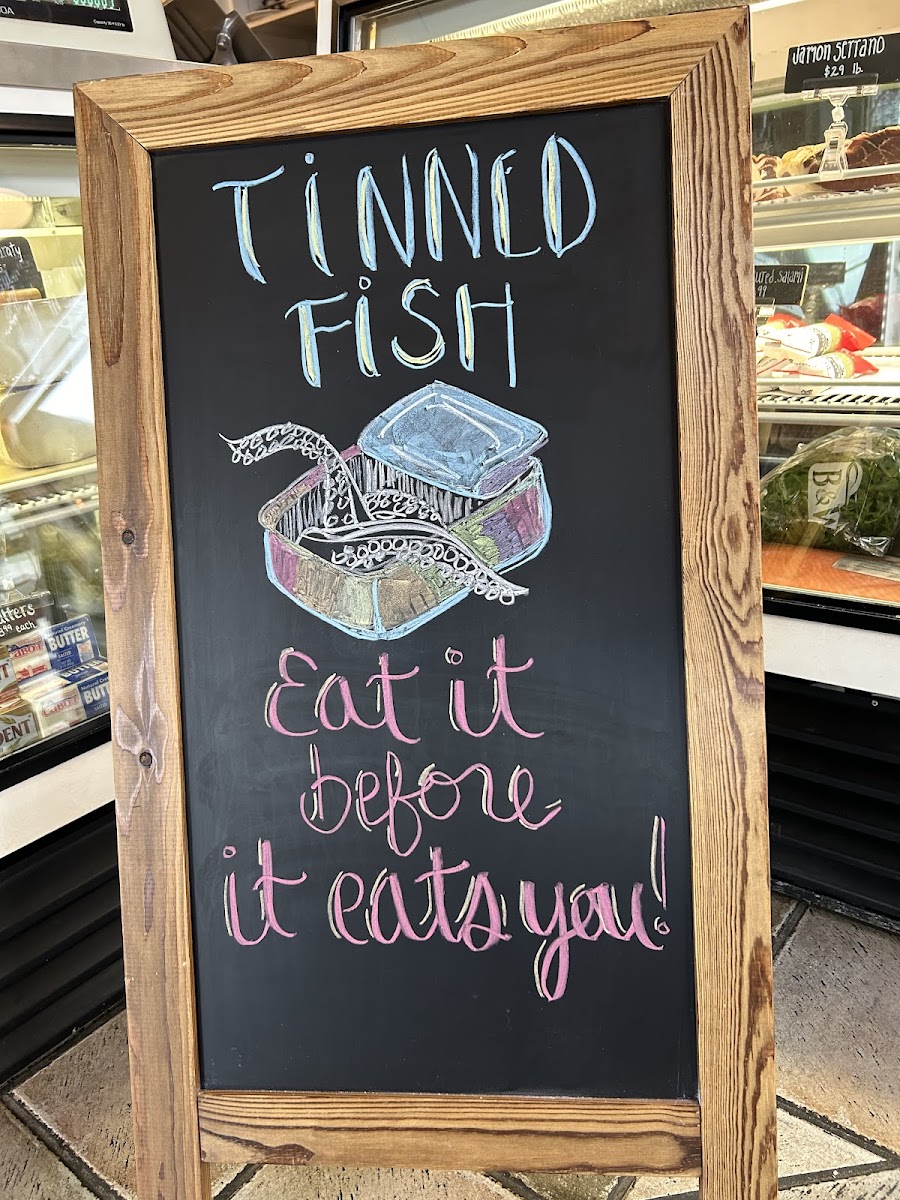 JAMON SERRANO
$29 lb.
TiNNED
FiSH
Eat it
before
it eats you!
BUTTER